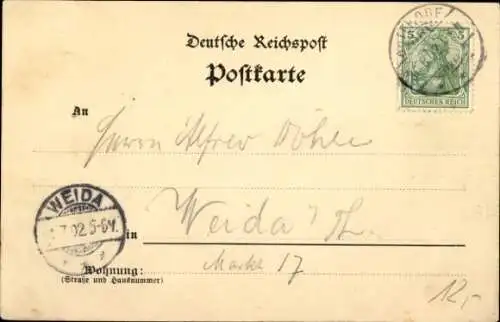 Deutsche Reichspost
Postkarte
5 5
DEUTSCHES REICH
An
Herrn Alfred Döhler
WEIDA
7.02.5-6N.
in
Weida i/Th.
Markt 17
Wohnung:
(Straße und Hausnummer)
12,-